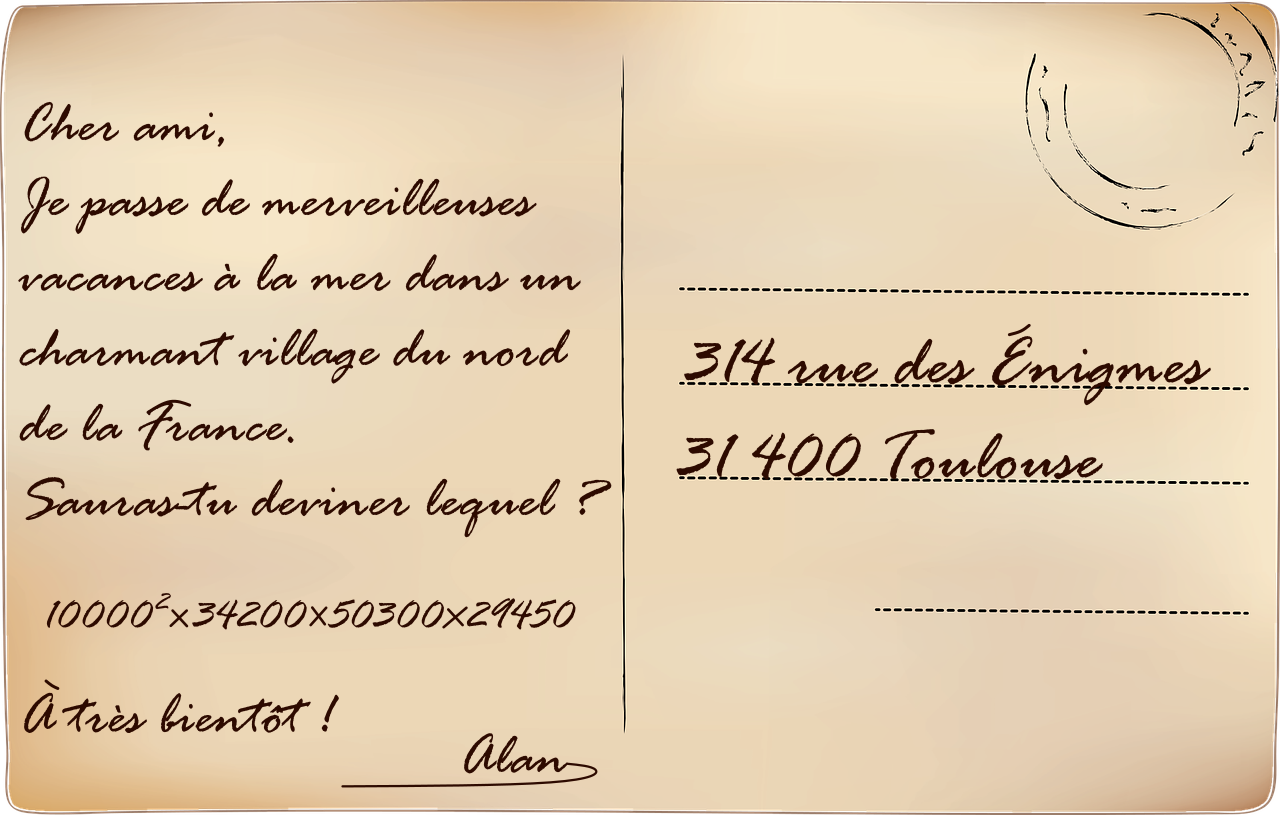 Cher ami,
Je passe de merveilleuses
vacances à la mer dans un
charmant village du nord
de la France.
Sauras-tu deviner lequel ?
10000²x34200x50300x29450
À très bientôt !
Alan
314 rue des Énigmes
31 400 Toulouse